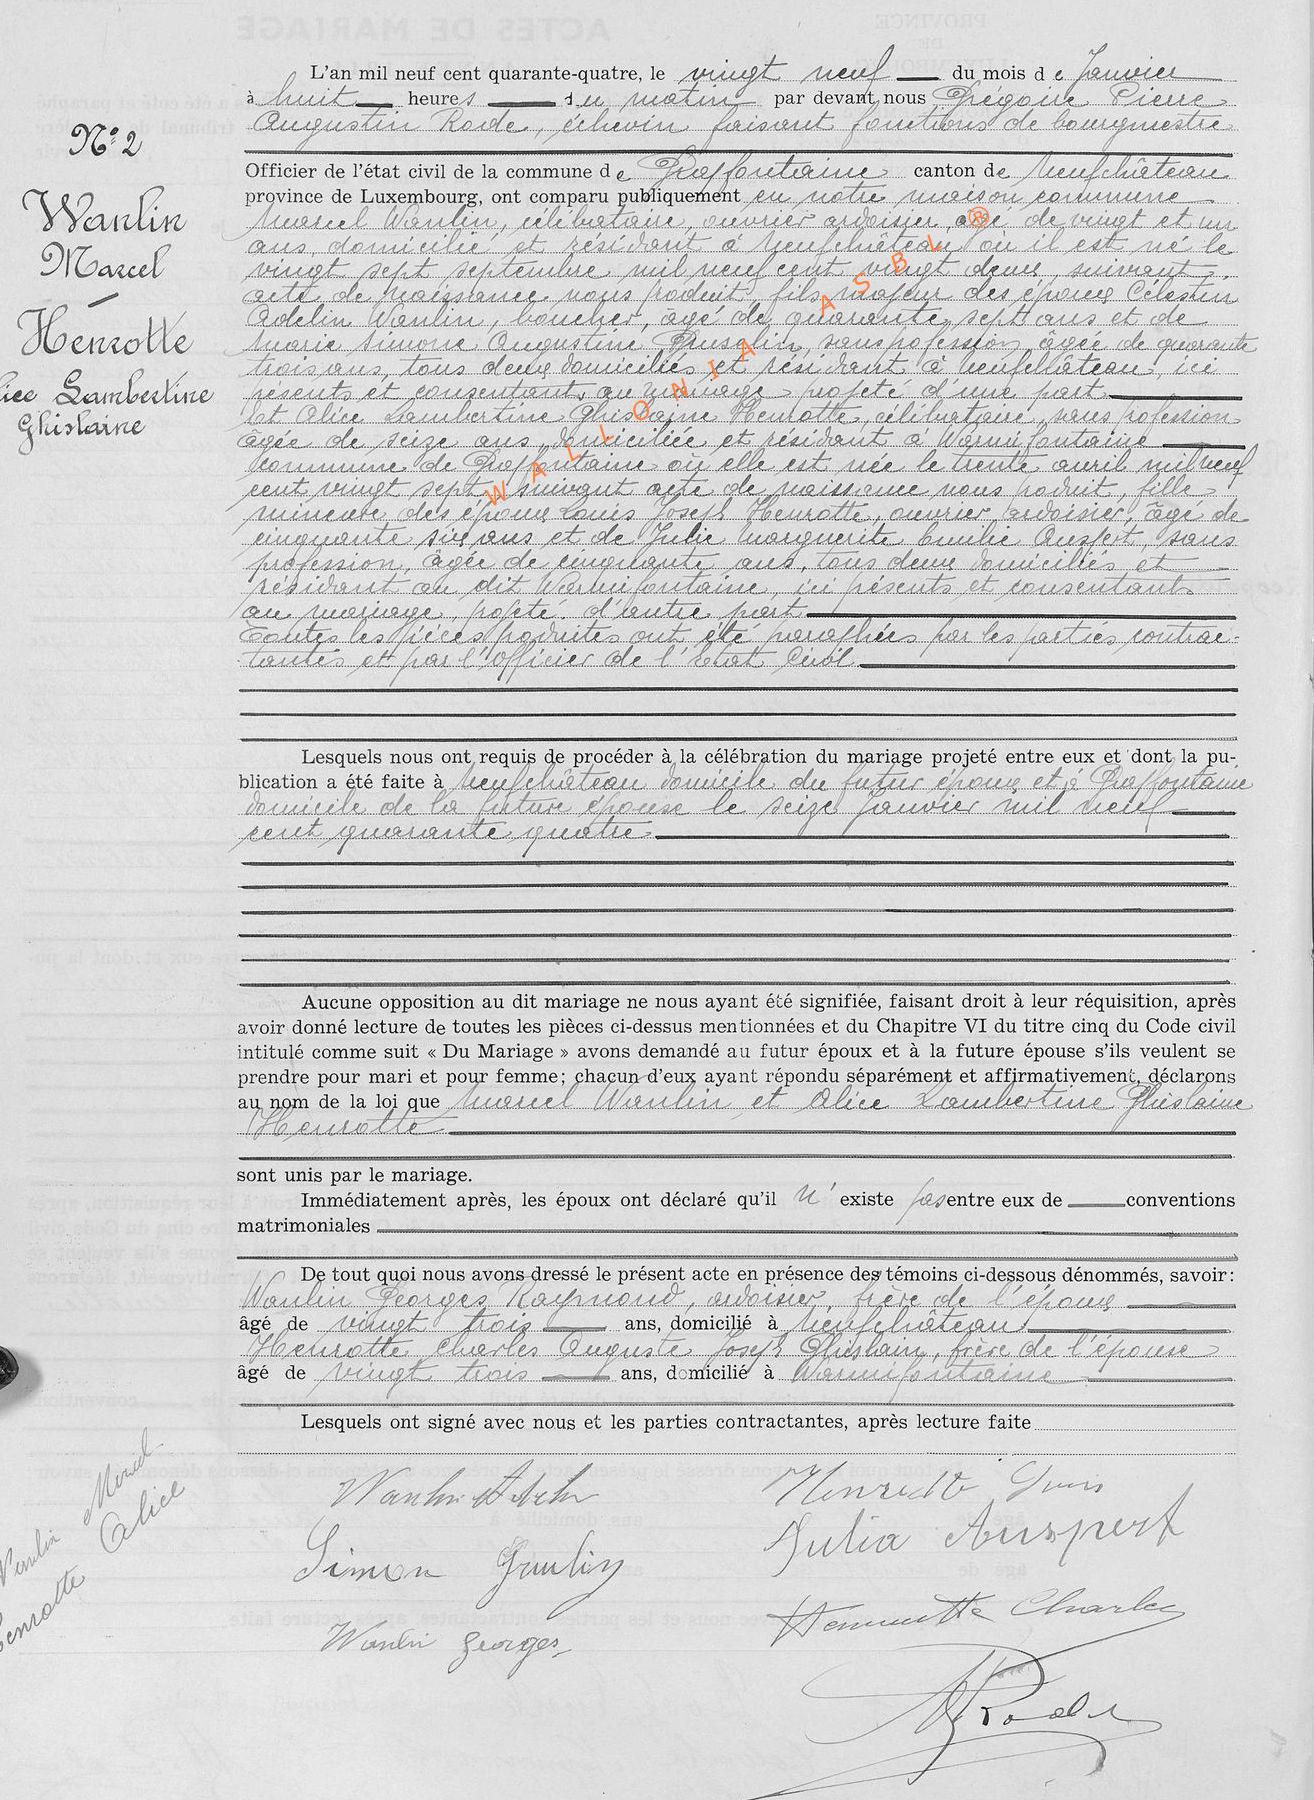 L'an mil neuf cent quarante-quatre, le vingt neuf du mois de Janvier
à huit heures du matin par devant nous Grégoire Pierre
Augustin Rode, échevin faisant fonctions de bourgmestre
Officier de l'état civil de la commune de Graffontaine canton de Neufchâteau
province de Luxembourg, ont comparu publiquement en notre maison commune
Marcel Wanlin, célibataire, ouvrier ardoisier, âgé de vingt et un
ans, domicilié et résidant à Neufchâteau où il est né le
vingt sept septembre mil neuf cent vingt deux, suivant
acte de naissance nous produit, fils majeur des époux Célestin
Adelin Wanlin, boucher, âgé de quarante sept ans et de
Marie Simone Augustine, sans profession, âgée de quarante
trois ans, tous deux domiciliés et résidant à Neufchâteau, ici
présents et consentants au mariage projeté d'une part
Et Alice Lambertine Ghislaine Henrotte, célibataire, sans profession
âgée de seize ans, domiciliée et résidant à Warmifontaine
commune de Graffontaine où elle est née le trente avril mil neuf
cent vingt sept, suivant acte de naissance nous produit, fille
mineure des époux Louis Joseph Henrotte, ouvrier ardoisier, âgé de
cinquante six ans et de Julie Marguerite Emilie Auspert, sans
profession, âgée de cinquante ans, tous deux domiciliés et
résidant au dit Warmifontaine, ici présents et consentants
au mariage projeté d'autre part
Toutes les pièces produites ont été paraphées par les parties contrac-
tantes et par l'Officier de l'Etat Civil
Lesquels nous ont requis de procéder à la célébration du mariage projeté entre eux et dont la pu-
blication a été faite à Neufchâteau domicile du futur époux et à Graffontaine
domicile de la future épouse le seize Janvier mil neuf
cent quarante quatre
Aucune opposition au dit mariage ne nous ayant été signifiée, faisant droit à leur réquisition, après
avoir donné lecture de toutes les pièces ci-dessus mentionnées et du Chapitre VI du titre cinq du Code civil
intitulé comme suit « Du Mariage » avons demandé au futur époux et à la future épouse s'ils veulent se
prendre pour mari et pour femme; chacun d'eux ayant répondu séparément et affirmativement, déclarons
au nom de la loi que Marcel Wanlin et Alice Lambertine Ghislaine
Henrotte
sont unis par le mariage.
Immédiatement après, les époux ont déclaré qu'il n'existe pas entre eux de conventions
matrimoniales
De tout quoi nous avons dressé le présent acte en présence des témoins ci-dessous dénommés, savoir:
Wanlin Georges Raymond, ardoisier, frère de l'époux
âgé de vingt trois ans, domicilié à Neufchâteau
Henrotte Charles Auguste Joseph Ghislain, frère de l'épouse
âgé de vingt trois ans, domicilié à Warmifontaine
Lesquels ont signé avec nous et les parties contractantes, après lecture faite
N° 2
Wanlin
Marcel
Henrotte
Alice Lambertine
Ghislaine
WALLONIA ASBL ®
Wanlin Marcel
Henrotte Alice
Wanlin
Simon
Wanlin Georges
Henrotte Louis
Julia Auspert
Henrotte Charles
Rode